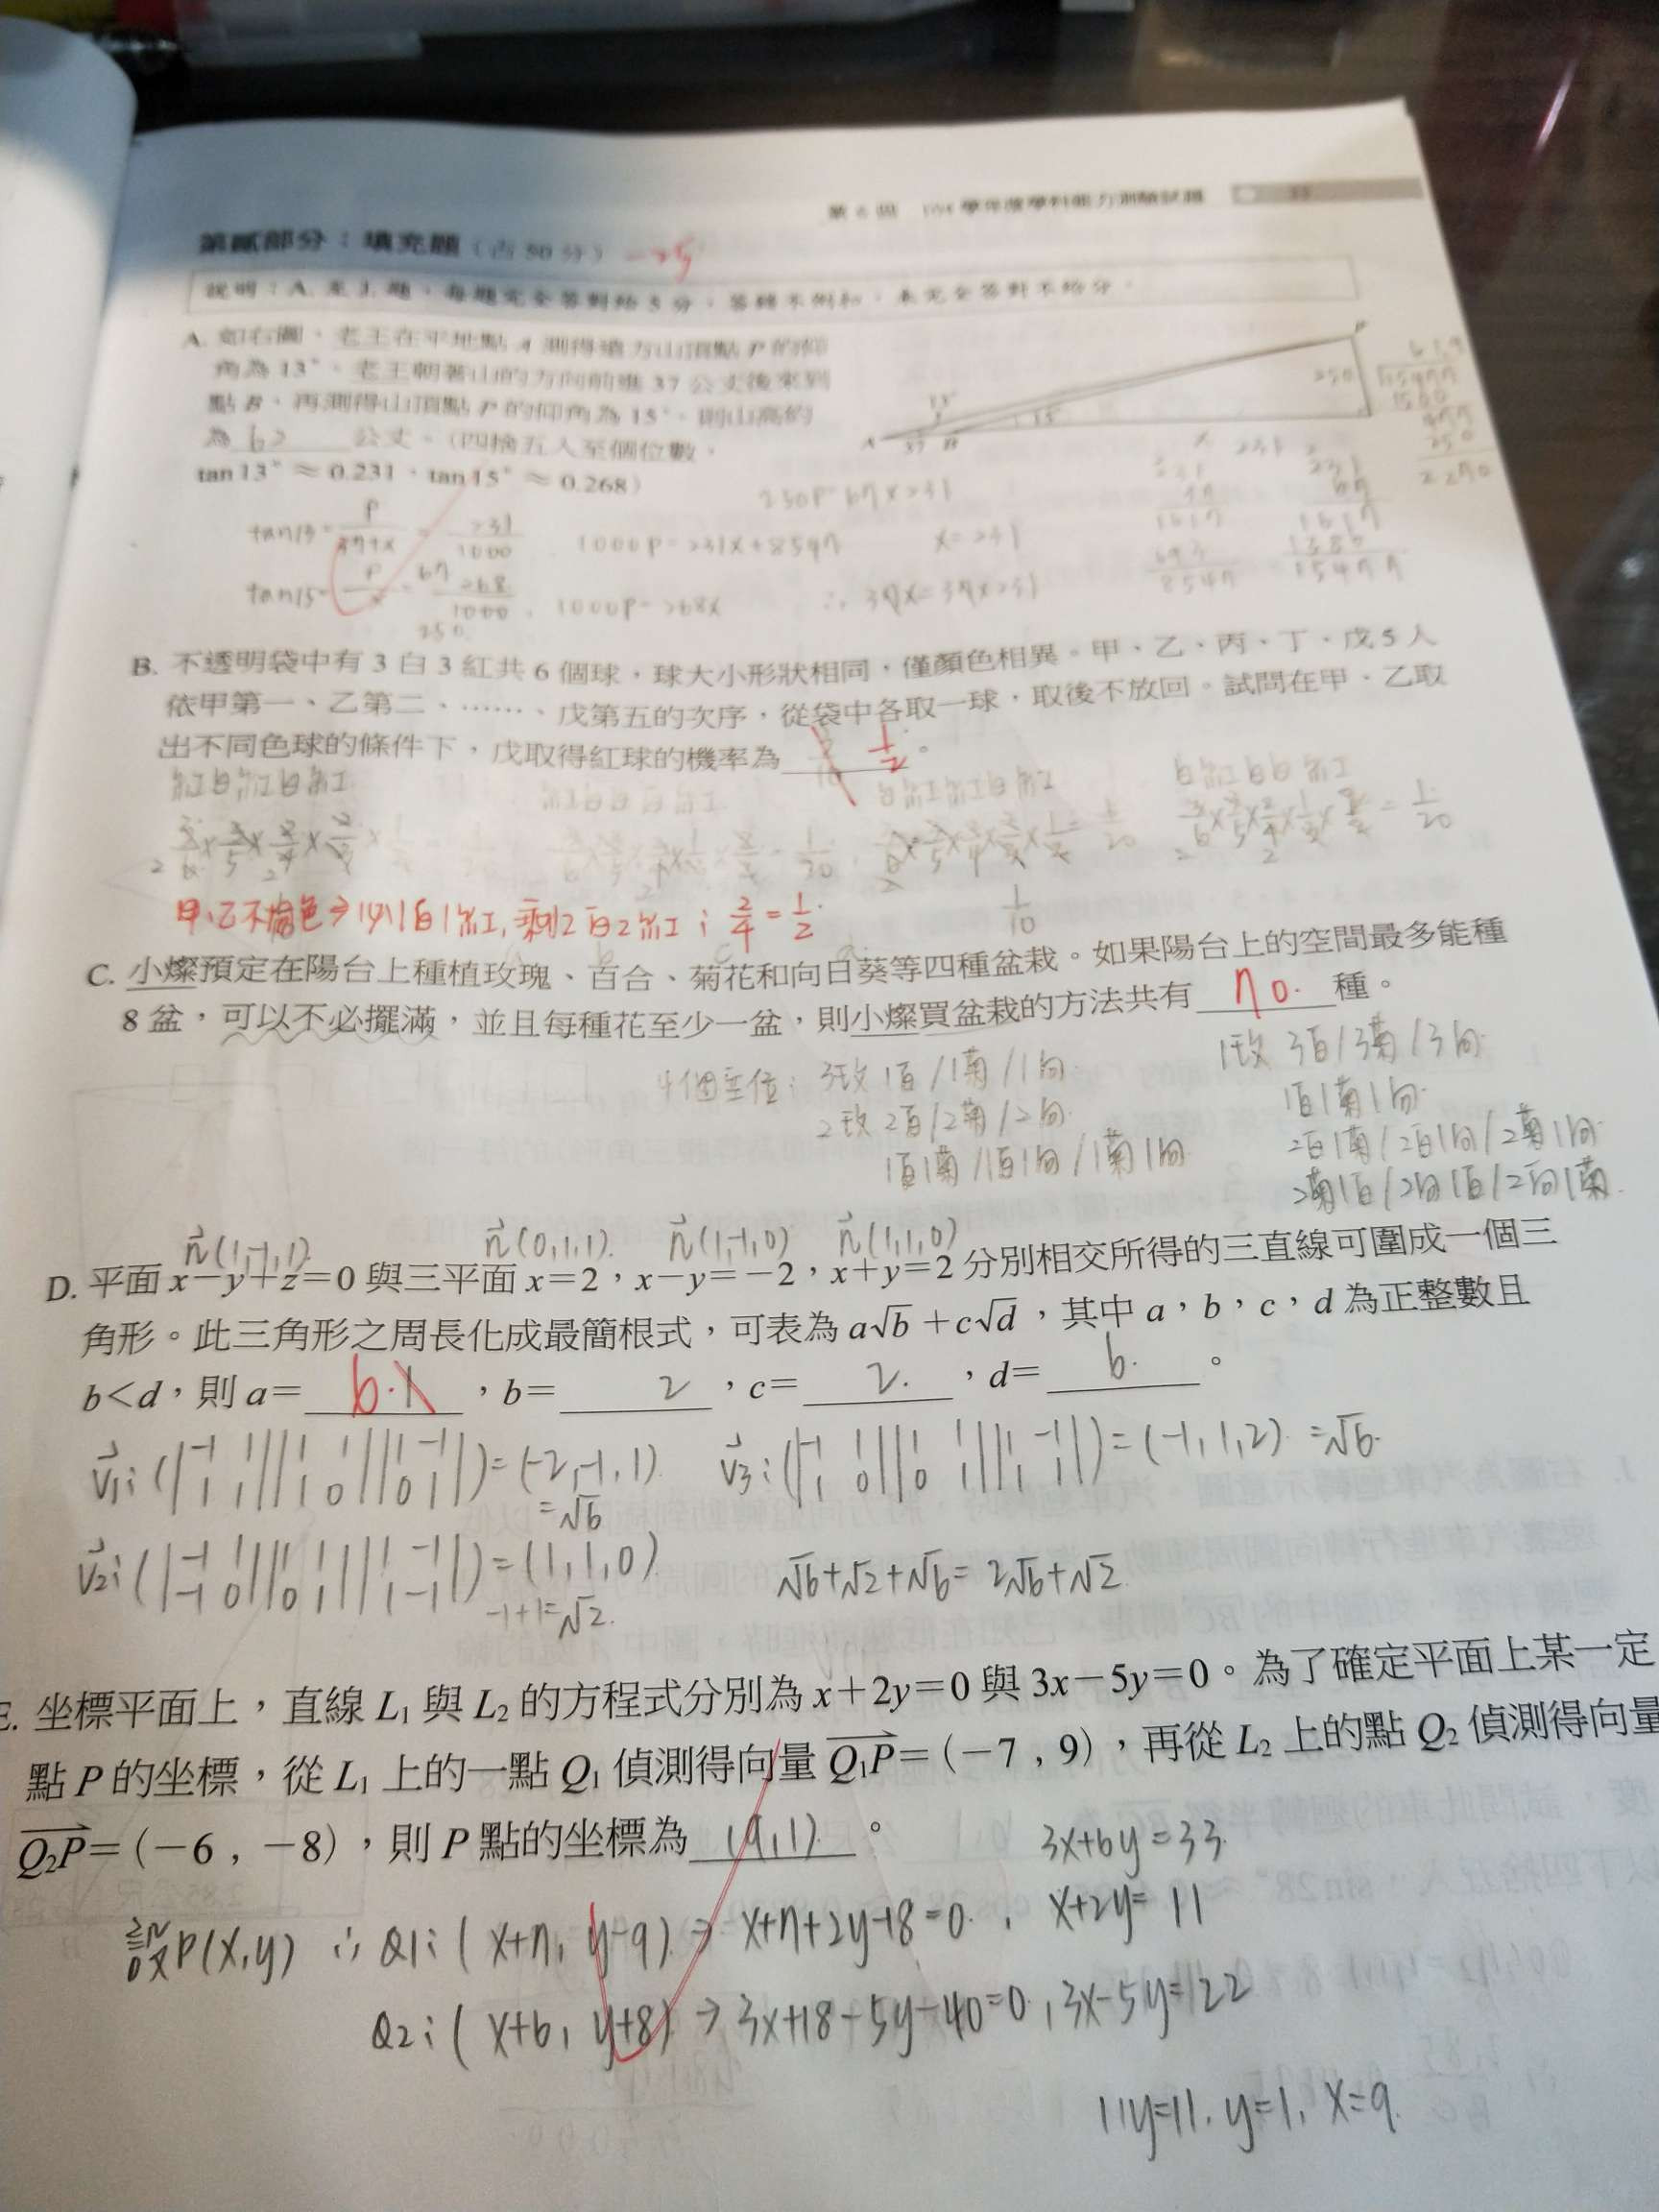 第貳部分：填充題（占 50 分）
說明：A. 至 J. 題，每題完全答對給 5 分，答錯不倒扣，未完全答對不給分。
A. 如右圖，老王在平地點 A 測得遠方山頂點 P 的仰
角為 13°，老王朝著山的方向前進 37 公丈後來到
點 B，再測得山頂點 P 的仰角為 15°，則山高約
為 62 公丈。（四捨五入至個位數，
tan13°≈0.231，tan15°≈0.268）
1000P=231x+8547
1000P=268x
x=231
∴ 37x=37×231
B. 不透明袋中有 3 白 3 紅共 6 個球，球大小形狀相同，僅顏色相異。甲、乙、丙、丁、戊 5 人
依甲第一、乙第二、……、戊第五的次序，從袋中各取一球，取後不放回。試問在甲、乙取
出不同色球的條件下，戊取得紅球的機率為 1/2 。
紅白紅白紅
白紅紅白紅
白紅白白紅
1/10
甲、乙不同色⇒少1白1紅,剩2白2紅; 2/4=1/2
C. 小燦預定在陽台上種植玫瑰、百合、菊花和向日葵等四種盆栽。如果陽台上的空間最多能種
8 盆，可以不必擺滿，並且每種花至少一盆，則小燦買盆栽的方法共有 70. 種。
4個空位: 3玫 1百/1菊/1向
2玫 2百/2菊/2向
1百1菊/1百1向/1菊1向
1玫 3百/3菊/3向
1百1菊1向
2百1菊/2百1向/2菊1向
2菊1百/2向1百/2向1菊
n(1,-1,1) n(0,1,1) n(1,-1,0) n(1,1,0)
D. 平面 x−y+z=0 與三平面 x=2，x−y=−2，x+y=2 分別相交所得的三直線可圍成一個三
角形。此三角形之周長化成最簡根式，可表為 a√b+c√d，其中 a，b，c，d 為正整數且
b<d，則 a= 6. 1 ，b= 2 ，c= 2. ，d= 6. 。
v1:(|-1 1||1 1||1 -1|)=(-2,-1,1)
|1 1||1 0||0 1|
=√6
v3:(|-1 1||1 1||1 -1|)=(-1,1,2) =√6.
|1 0||0 1||1 1|
v2:(|-1 1||1 1||1 -1|)=(1,1,0)
|-1 0||0 1||1 -1|
-1+1=√2.
√6+√2+√6=2√6+√2
E. 坐標平面上，直線 L1 與 L2 的方程式分別為 x+2y=0 與 3x−5y=0。為了確定平面上某一定
點 P 的坐標，從 L1 上的一點 Q1 偵測得向量 Q1P=(−7，9)，再從 L2 上的點 Q2 偵測得向量
Q2P=(−6，−8)，則 P 點的坐標為 (9,1) 。
3x+6y=33
設P(x,y) ∴ Q1:(x+7, y-9)⇒x+7+2y-18=0., x+2y=11
Q2:(x+6, y+8)⇒3x+18-5y-40=0, 3x-5y=22
11y=11, y=1, x=9.